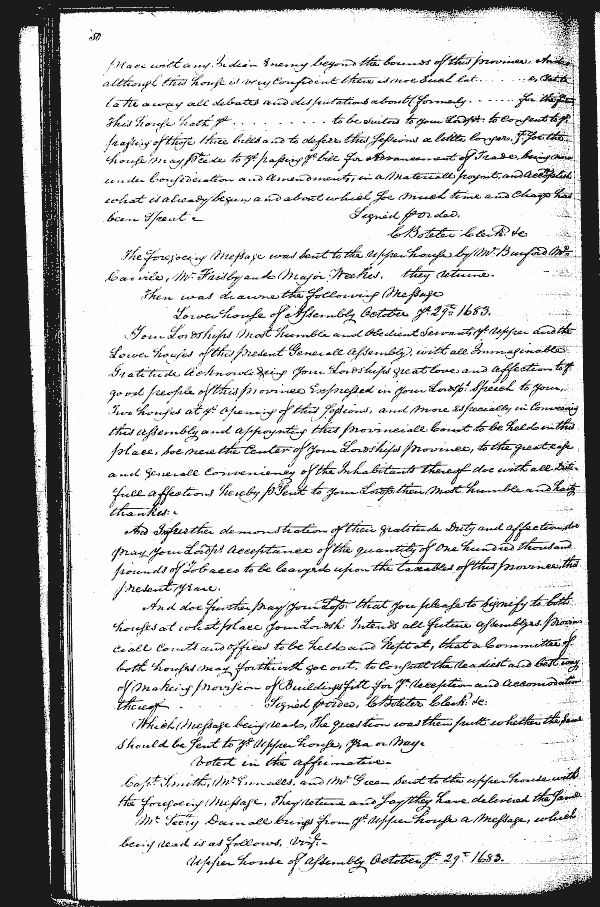 50
peace with any Indian Enemy beyond the bounds of this province. And
although this house is very Confident there is noe Such let . . . . .
take away all debates and disputations about formerly . . . . . for the
This house doth . . . . . . . . . to be suitors to your Lordsp: to Consent to ye
passing of those three bills and to deferr this Sessions a little longer, for the
house may pceede to ye passing ye bill for Advancement of Trade, being now
under Consideration and Amendments, in a Materiall poynt, and accomplish
what is already begun and about which soe much time and Charge has
been Spent —
Signed p order.
C Boteler Clerk &c
The foregoeing Message was Sent to the Upper house by Mr. Burford Mr.
Carvile, Mr. Frisby and Major Weekes. they returne.
Then was drawne the following Message
Lower house of Assembly October ye 29th 1683.
Your Lordships Most humble and Obedient Servants ye Upper and the
Lower houses of this present Generall Assembly, with all Immaginable
Gratitude Acknowledging Your Lordships great love and affection to ye
good people of this province Expressed in your Lordsps: Speech to Your
Two houses at ye Opening of this Sessions, and more especially in Conveneing
this Assembly and appoynting this Provinciall Court to be held in this
place, soe near the Center of Your Lordships province, to the great ease
and Generall Conveniency of the Inhabitants thereof doe with all Duti-
full affections hereby pSent to your Lordspp their most humble and hearty
thankes:-
And Infurther demonstration of their gratitude Duty and affection, doe
pray Your Lordsps Acceptance of the quantity of One hundred thousand
pounds of Tobacco to be leavyed upon the taxables of this province this
present yeare.
And doe further pray Your Lopp: that you please to Signify to both
houses at what place Your Lordsh: Intends all future Assemblyes, Provin-
ciall Courts and offices to be held and Kept at, that a Committee of
both houses may forthwith goe out, to Consult the readiest and best way
of making provision of Buildings fitt for ye Reception and Accomodation
thereof . . . . . Signed p order, C Boteler Clerk: &c.
Which Message being read, The question was then putt whether the same
should be Sent to ye Upper house, Yea or Nay.
Voted in the affirmative.
Capt. Smith, Mr. Ennalls, and Mr. Green Sent to the upper house with
the foregoeing Message. They returne and Say they have delivered the Same
Mr. Secty Darnall brings from ye Upper house a Message, which
being read is as follows, vizt:-
Upper house of Assembly October ye 29th 1683.